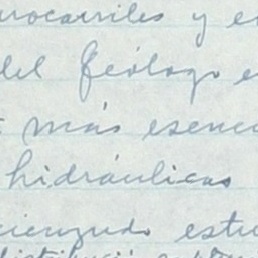 rrocarriles y e
del geólogo e
más esenc
hidráulicas
estu